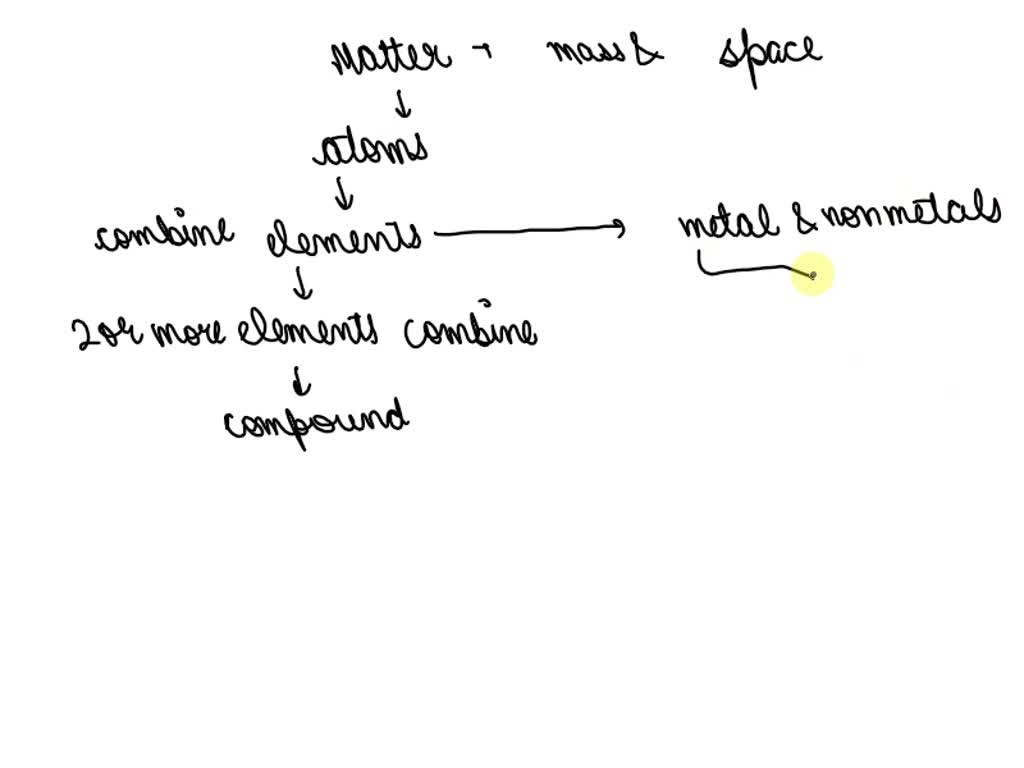 Matter → mass & space
↓
atoms
↓
combine elements → metal & nonmetals
↓
2 or more elements combine
↓
compound